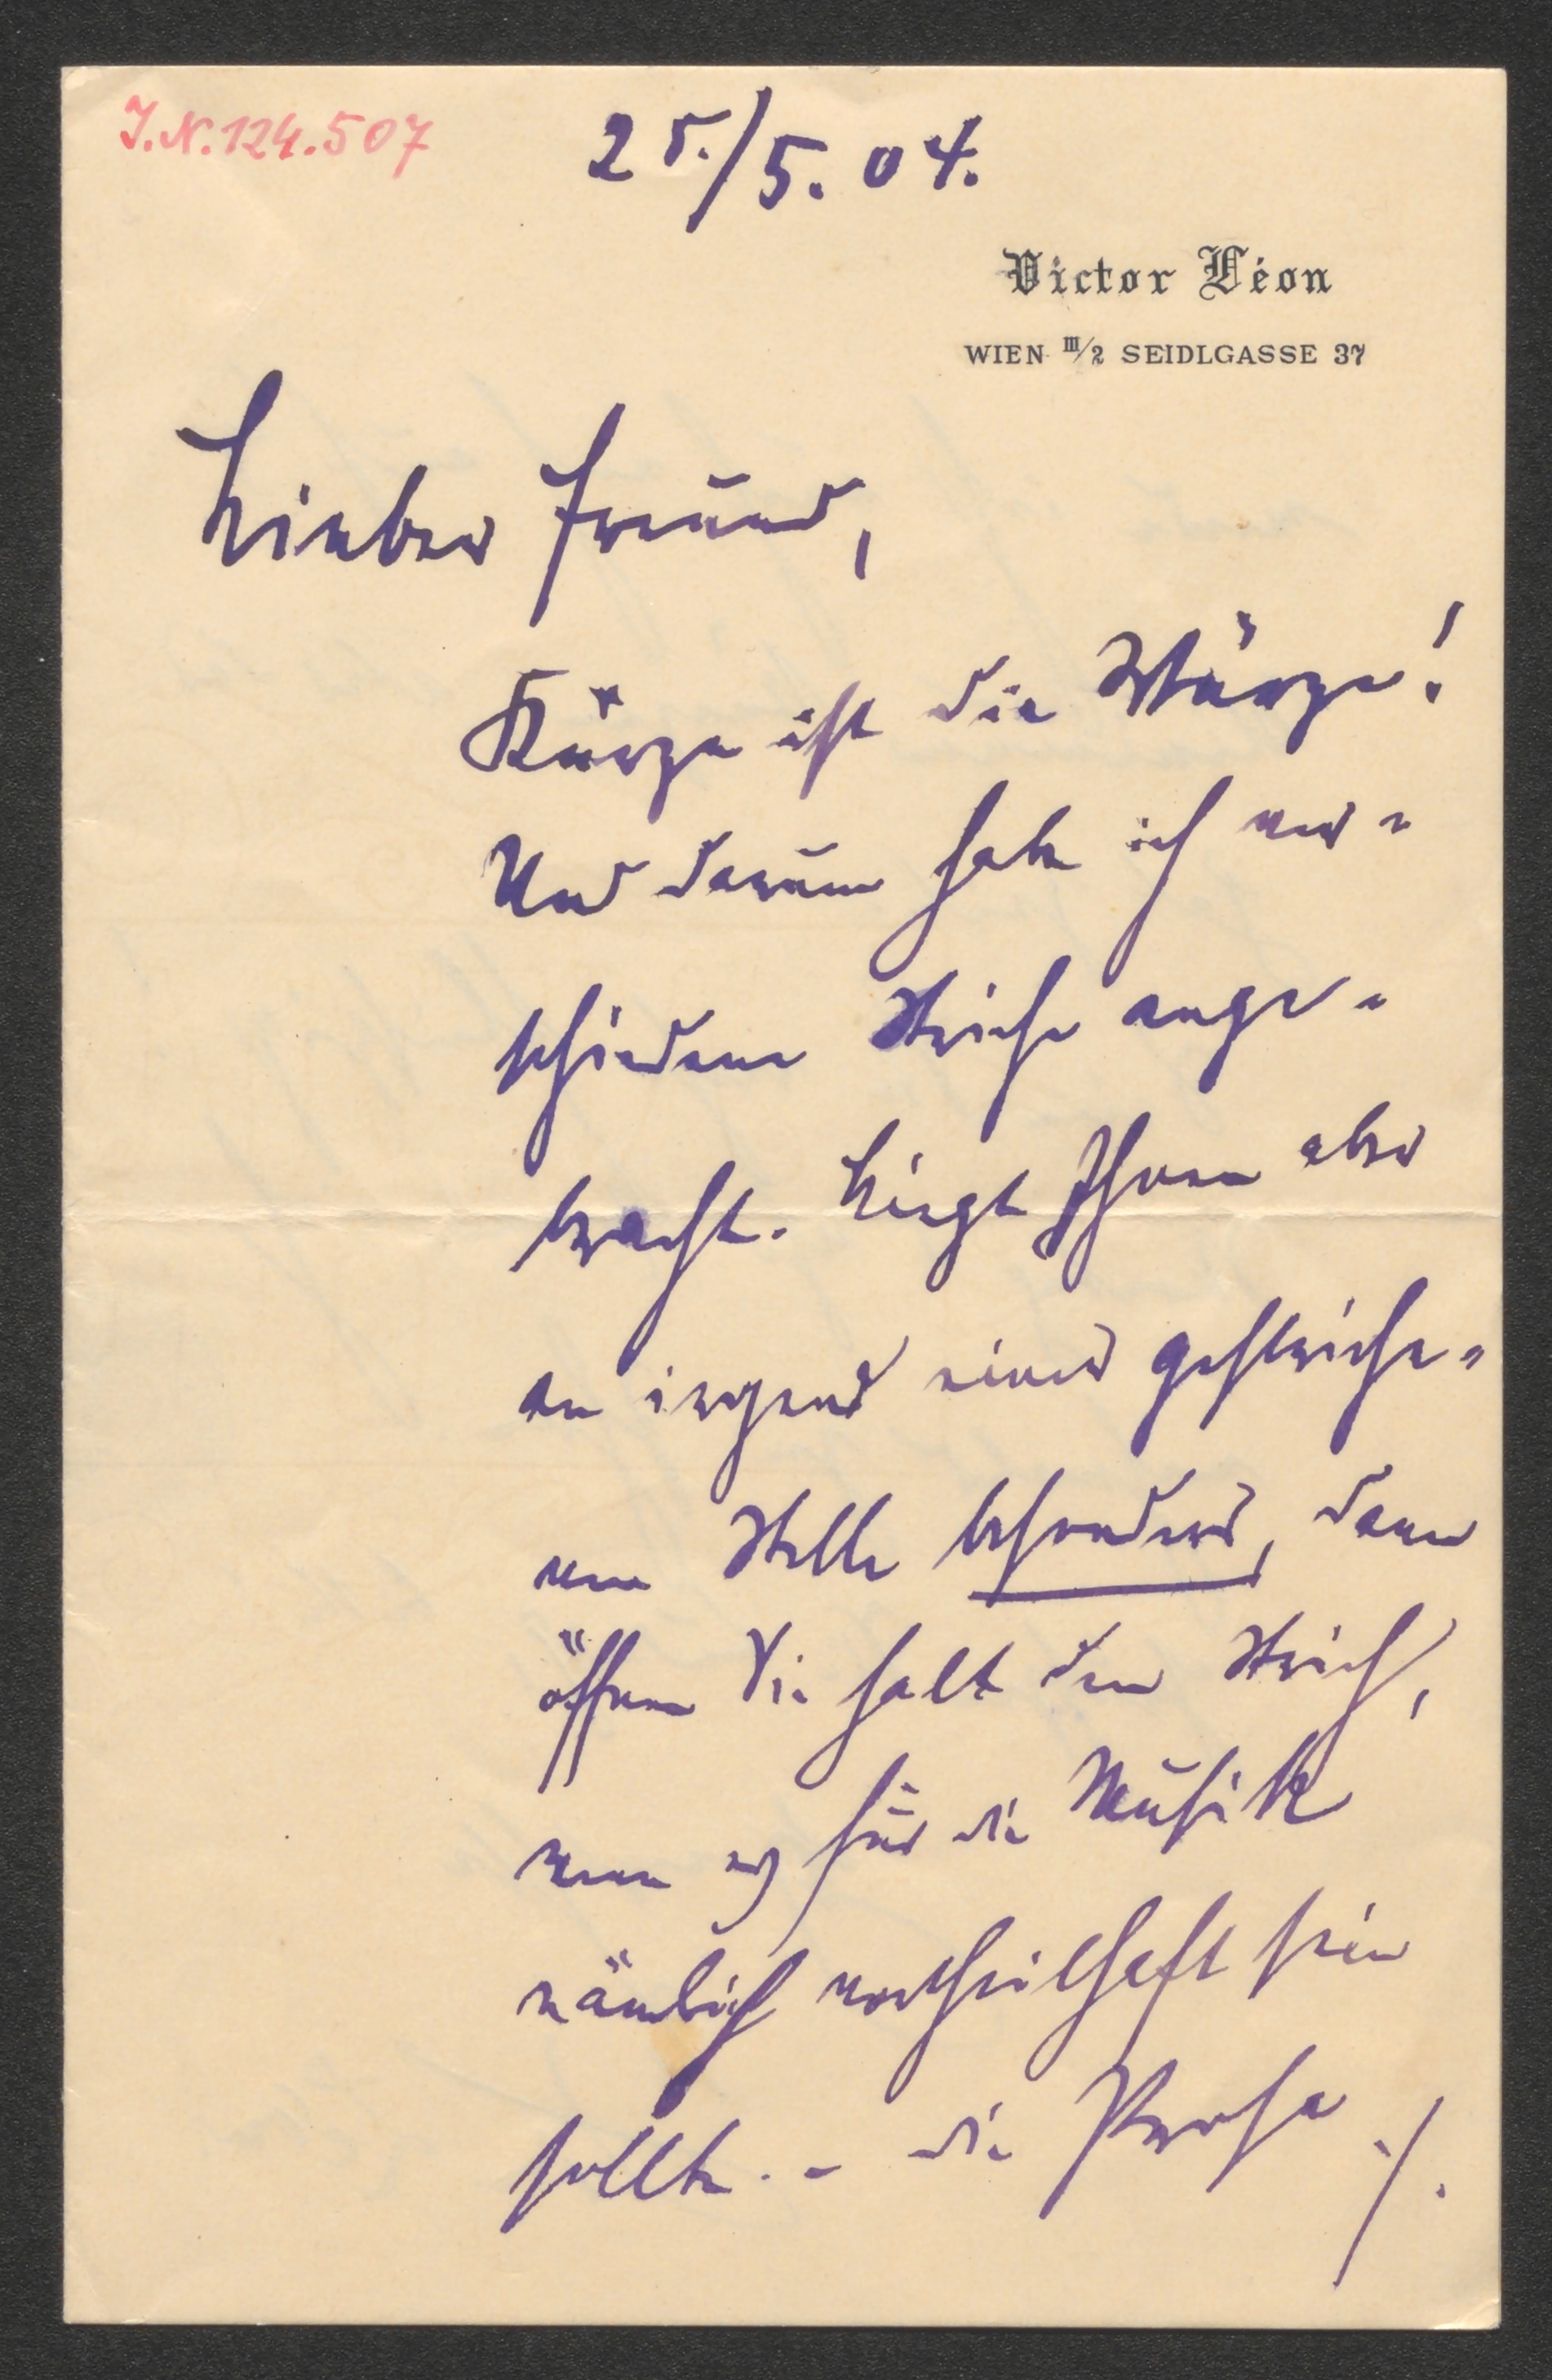 J.N. 124.507
25./5. 04.
Victor Léon
WIEN III/2 SEIDLGASSE 37
Lieber Freund,
Kürze ist die Würze!
Und darum habe ich ver-
schiedene Striche ange-
bracht. Liegt Ihnen aber
an irgend einer gestriche-
nen Stelle besonders, dann
öffnen Sie halt den Strich,
wenn es für die Musik
nämlich vortheilhaft sein
sollte. – die Prosa ./.